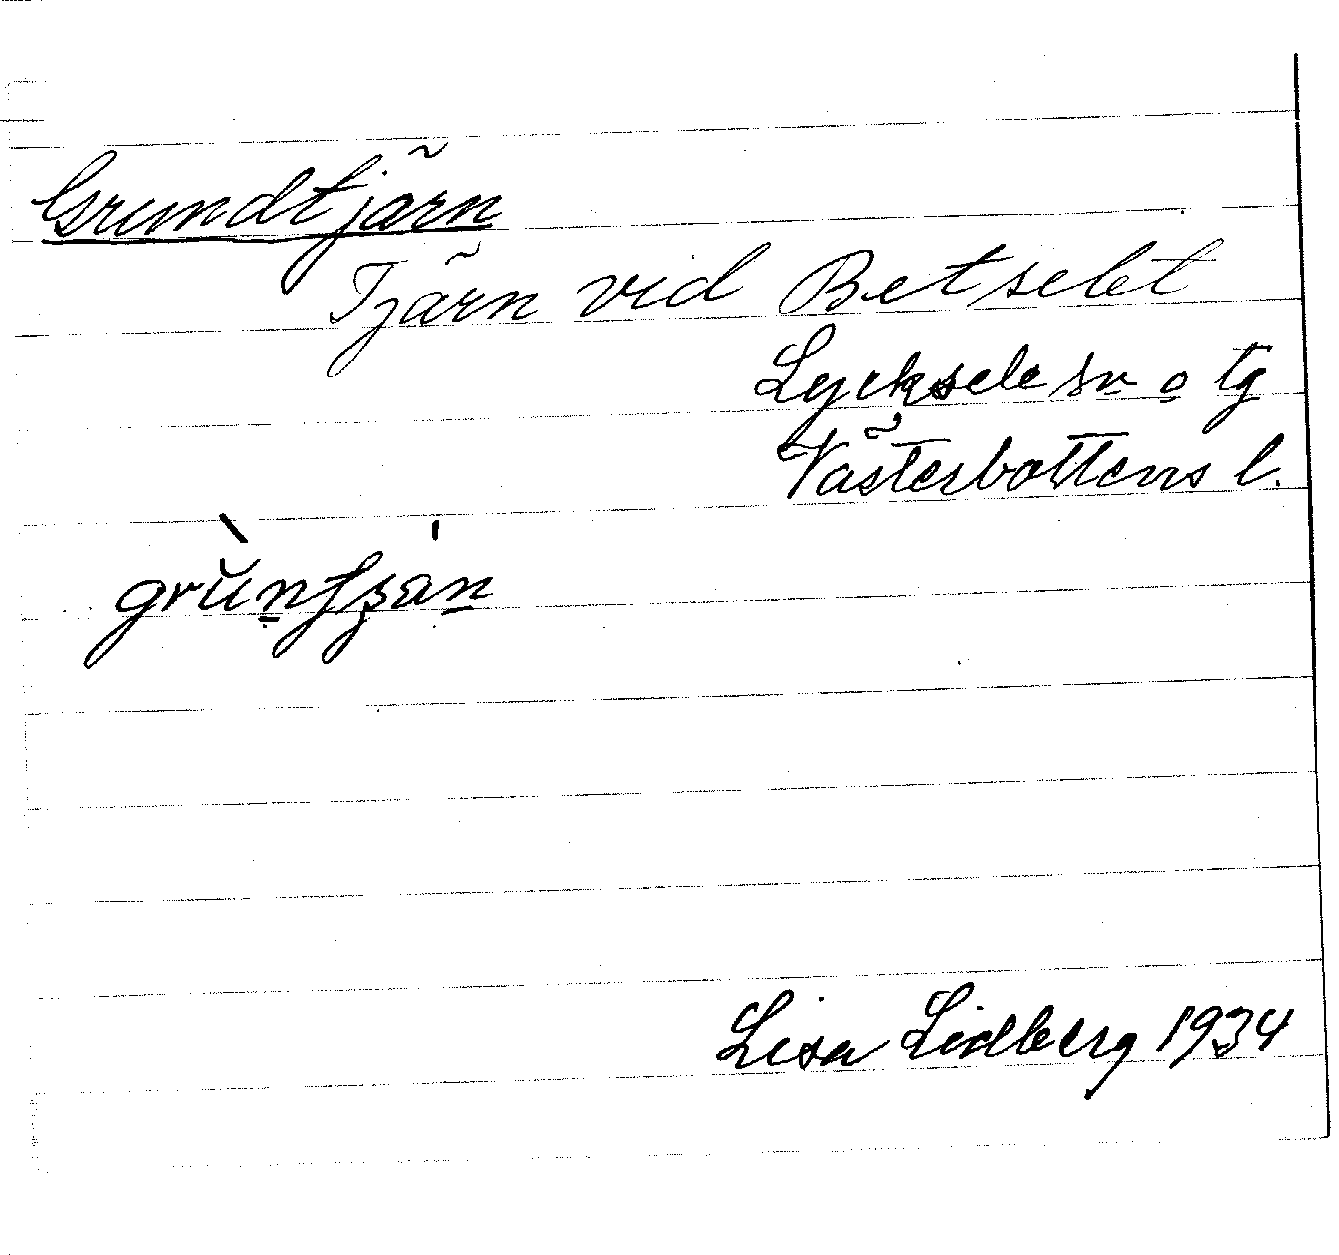 Grundtjärn
Tjärn vid Betselet
Lycksele sn o tg
Västerbottens l.
Lisa Lidberg 1934